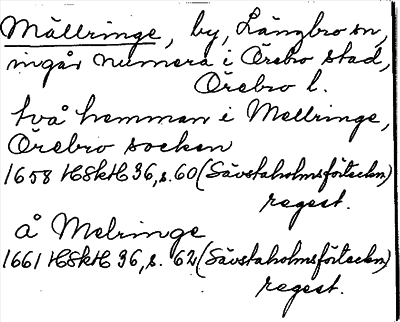 Mällringe, by, Längbro sn,
ingår numera i Örebro stad,
Örebro l.
två hemman i Mellringe,
Örebro socken
1658 HSkH 36, s. 60 (Sävstaholmsförteckn)
regest.
å Melringe
1661 HSkH 36, s. 62 (Sävstaholmsförteckn)
regest.